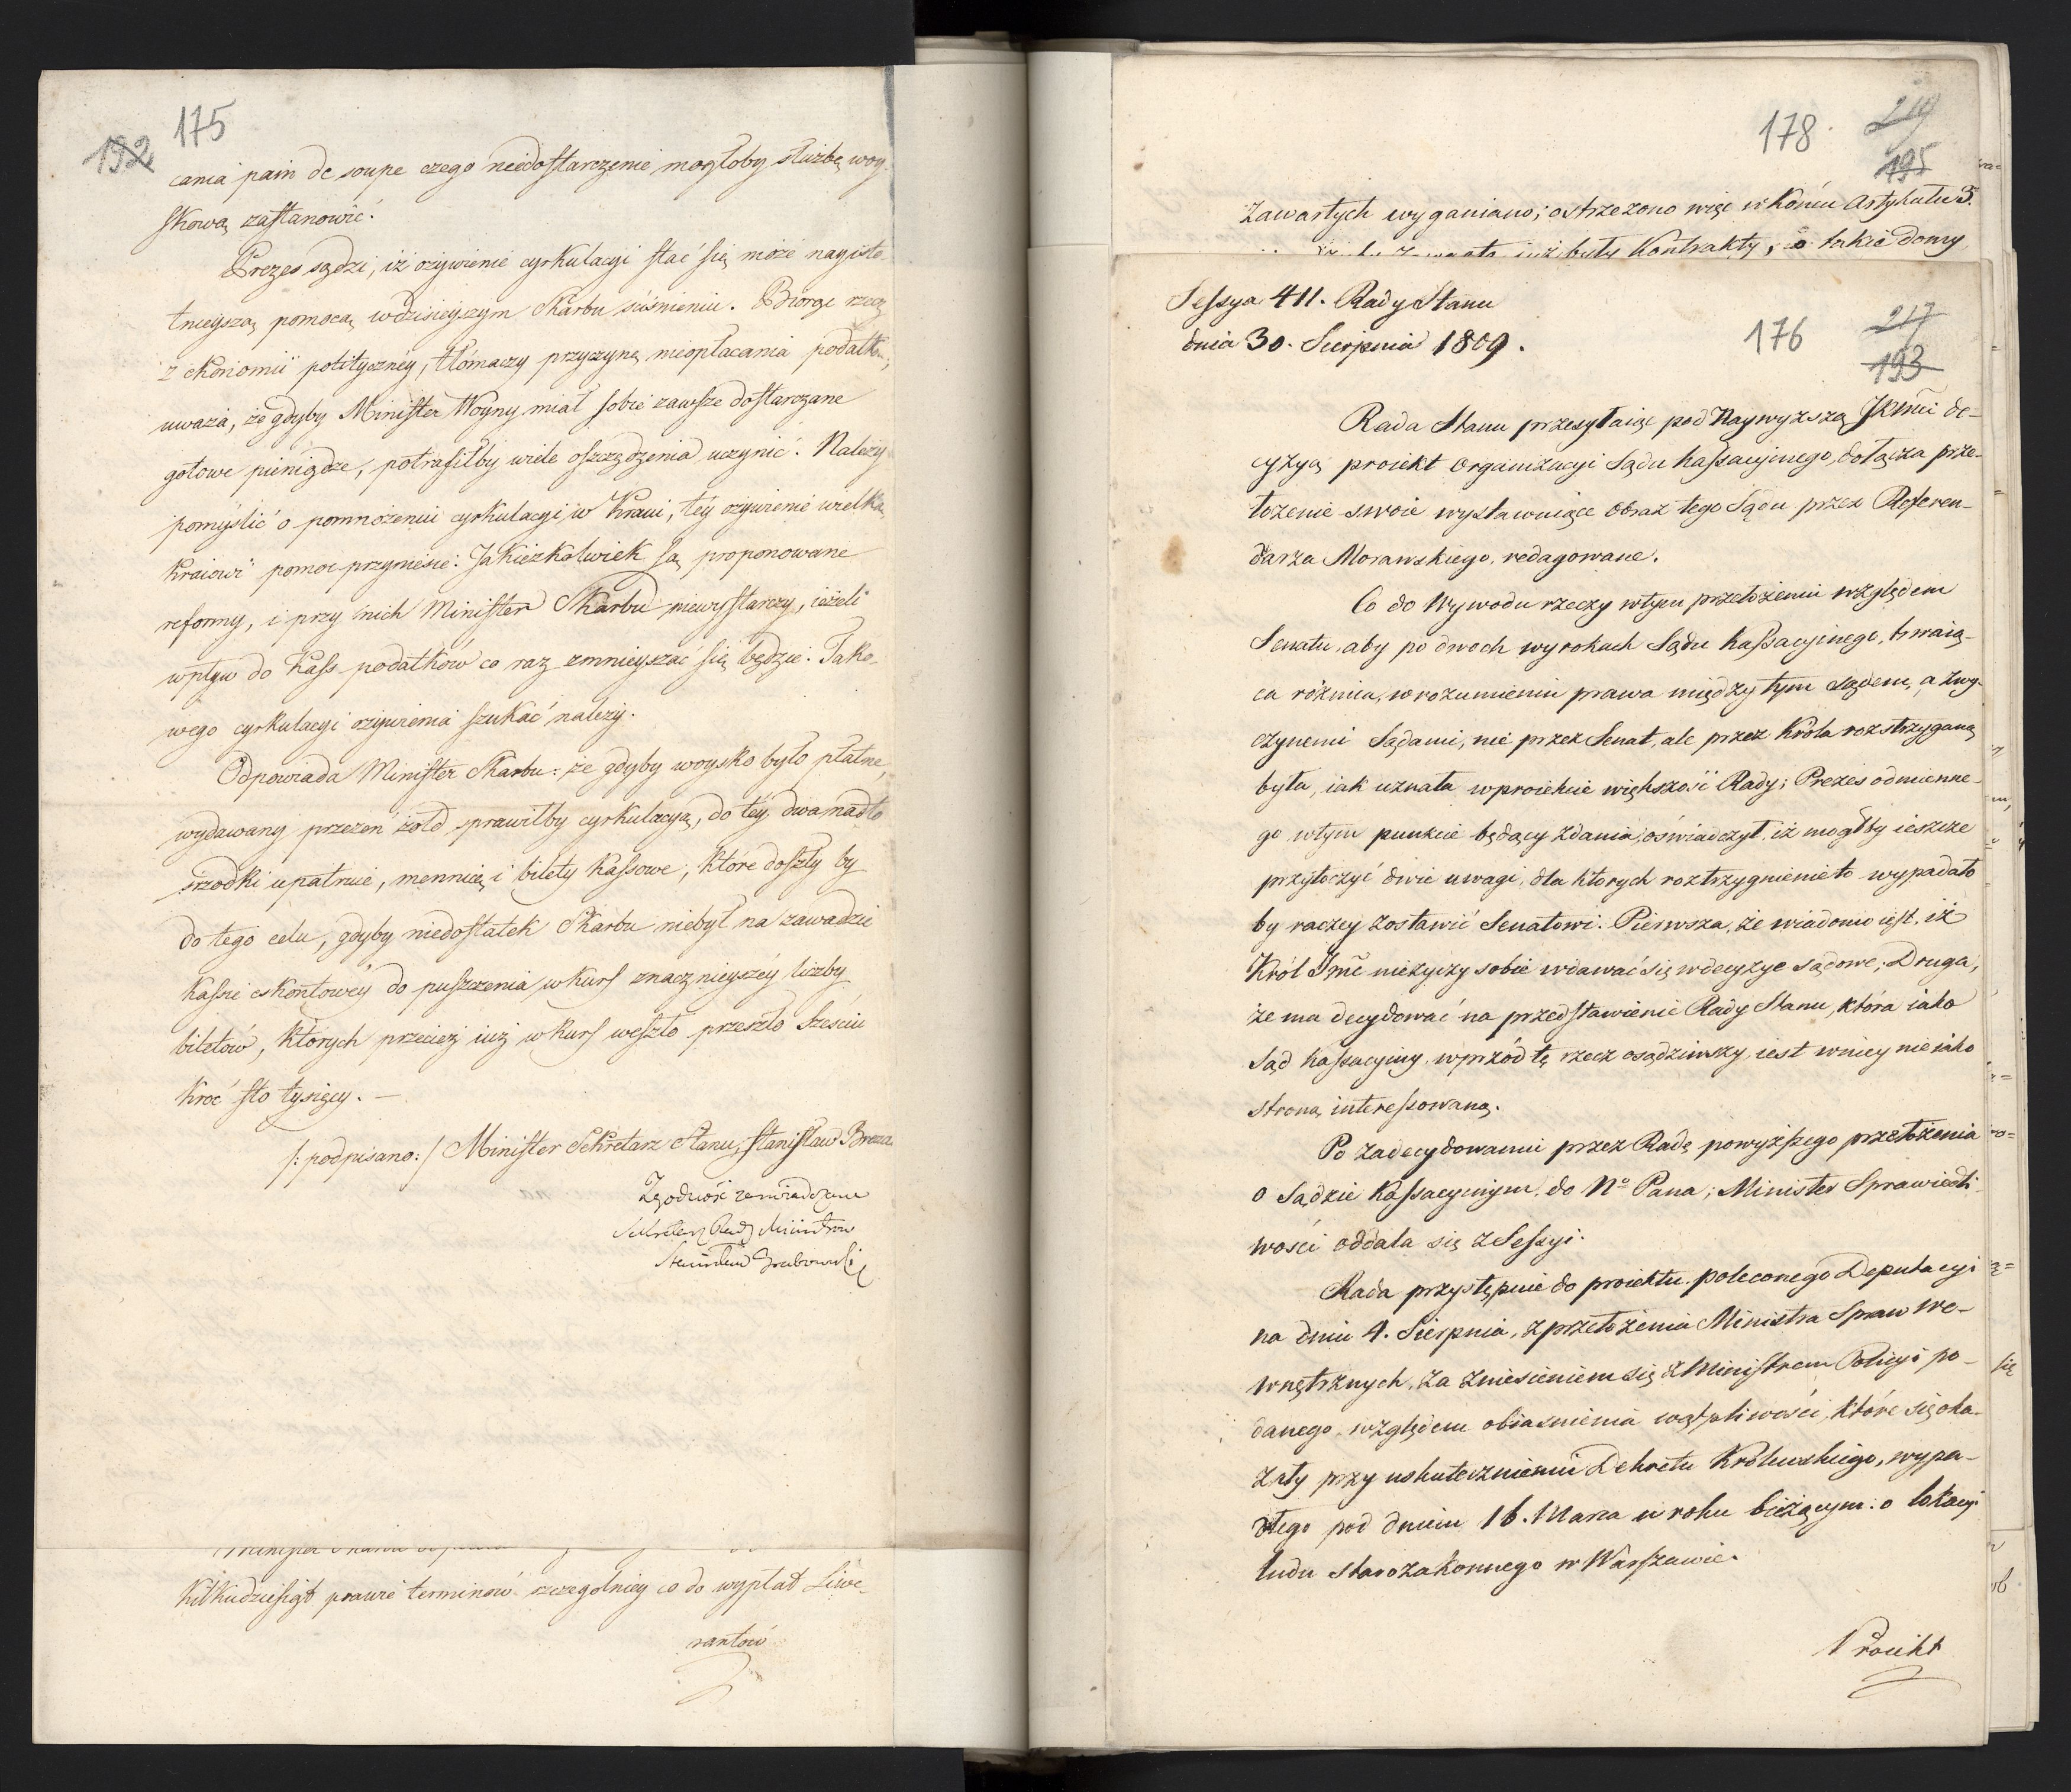 175
192
cania pain de soupe czego niedostarczenie mogłoby służbę woy
skową zastanowić.
Prezes sądzi, iż ożywienie cyrkulacyi stać się może nayisto
tnieyszą pomocą w dzisieyszym Skarbu ściśnieniu. Biorąc rzecz
z ekonomii polityczney, tłómaczy przyczynę nieopłacania podatków;
uważa, że gdyby Minister Woyny miał sobie zawsze dostarczane
gotowe pieniądze, potrafiłby wiele oszczędzenia uczynić. Należy
pomyślić o pomnożeniu cyrkulacyi w Kraiu, téy ożywienie wielką
Kraiowi pomoc przyniesie. Jakieżkolwiek są proponowane
reformy, i przy nich Minister Skarbu niewystarczy, ieżeli
wpływ do Kass podatków co raz zmnieyszać się będzie. Tako-
wego cyrkulacyi ożywienia szukać należy.
Odpowiada Minister Skarbu: że gdyby woysko było płatne,
wydawany przezeń żołd sprawiłby cyrkulacyą, do téy dwa nadto
srzodki upatruie, mennicę i bilety Kassowe, które doszły by
do tego celu, gdyby niedostatek Skarbu niebył na zawadzie
Kassie eskontowéy do puszczenia w kurs znacznieyszéy liczby
biletów, których przecież iuż w kurs weszło przeszło sześciu
kroć sto tysięcy. —
/: podpisano:/ Minister Sekretarz Stanu, Stanisław Breza
Zgodność zaświadczam
Sekretarz Rady Ministrów
Stanisław Grabowski
Kilkudziesiąt prawie terminów szczególniey co do wypłat Liwe-
rantów
178.
219
195
zawartych wyganiano; ostrzeżono więc w końcu Artykułu 3.
iuż były Kontrakty, o takie domy
Sessya 411. Rady Stanu
dnia 30. Sierpnia 1809.
176
217
193
Rada Stanu przesyłaiąc pod Naywyższą JKMci de-
cyzyą proiekt organizacyi Sądu kassacyinego, dołącza prze-
łożenie swoie wystawuiące obraz tego Sądu przez Referen-
darza Morawskiego, redagowane.
Co do Wywodu rzeczy w tym przełożeniu względem
Senatu, aby po dwoch wyrokach Sądu kassacyinego, trwaią-
ca różnica, w rozumieniu prawa między tym Sądem, a zwy-
czynemi Sądami, nie przez Senat, ale przez Króla rozstrzyganą
była, iak uznała w proiekcie większość Rady; Prezes odmienne-
go w tym punkcie będący zdania, oświadczył, iż mogłby ieszcze
przytoczyć dwie uwagi, dla ktorych roztrzygnienie to wypadało
by raczey zostawić Senatowi. Pierwsza, że wiadomo iest, iż
Król Jmć nieżyczy sobie wdawać się w decyzye sądowe; Druga,
że ma decydować na przedstawienie Rady Stanu, która iako
Sąd kassacyiny, wprzód tę rzecz osądziwszy, iest w niey nieiako
stroną interessowaną.
Po zadecydowaniu przez Radę powyższego przełożenia
o Sądzie Kassacyinym, do No Pana; Minister Sprawiedli-
wości oddala się z Sessyi.
Rada przystępuie do proiektu, poleconego Deputacyi
na dniu 4. Sierpnia, z przełożenia Ministra Spraw We-
wnętrznych, za zniesieniem się z Ministrem Policyi po-
danego, względem obiasnienia wątpliwości, które się oka-
zały przy uskutecznieniu Dekretu Królewskiego, wypa-
dłego pod dniem 16. Marca w roku bieżącym: o lokacyi
ludu starozakonnego w Warszawie.
Proiekt